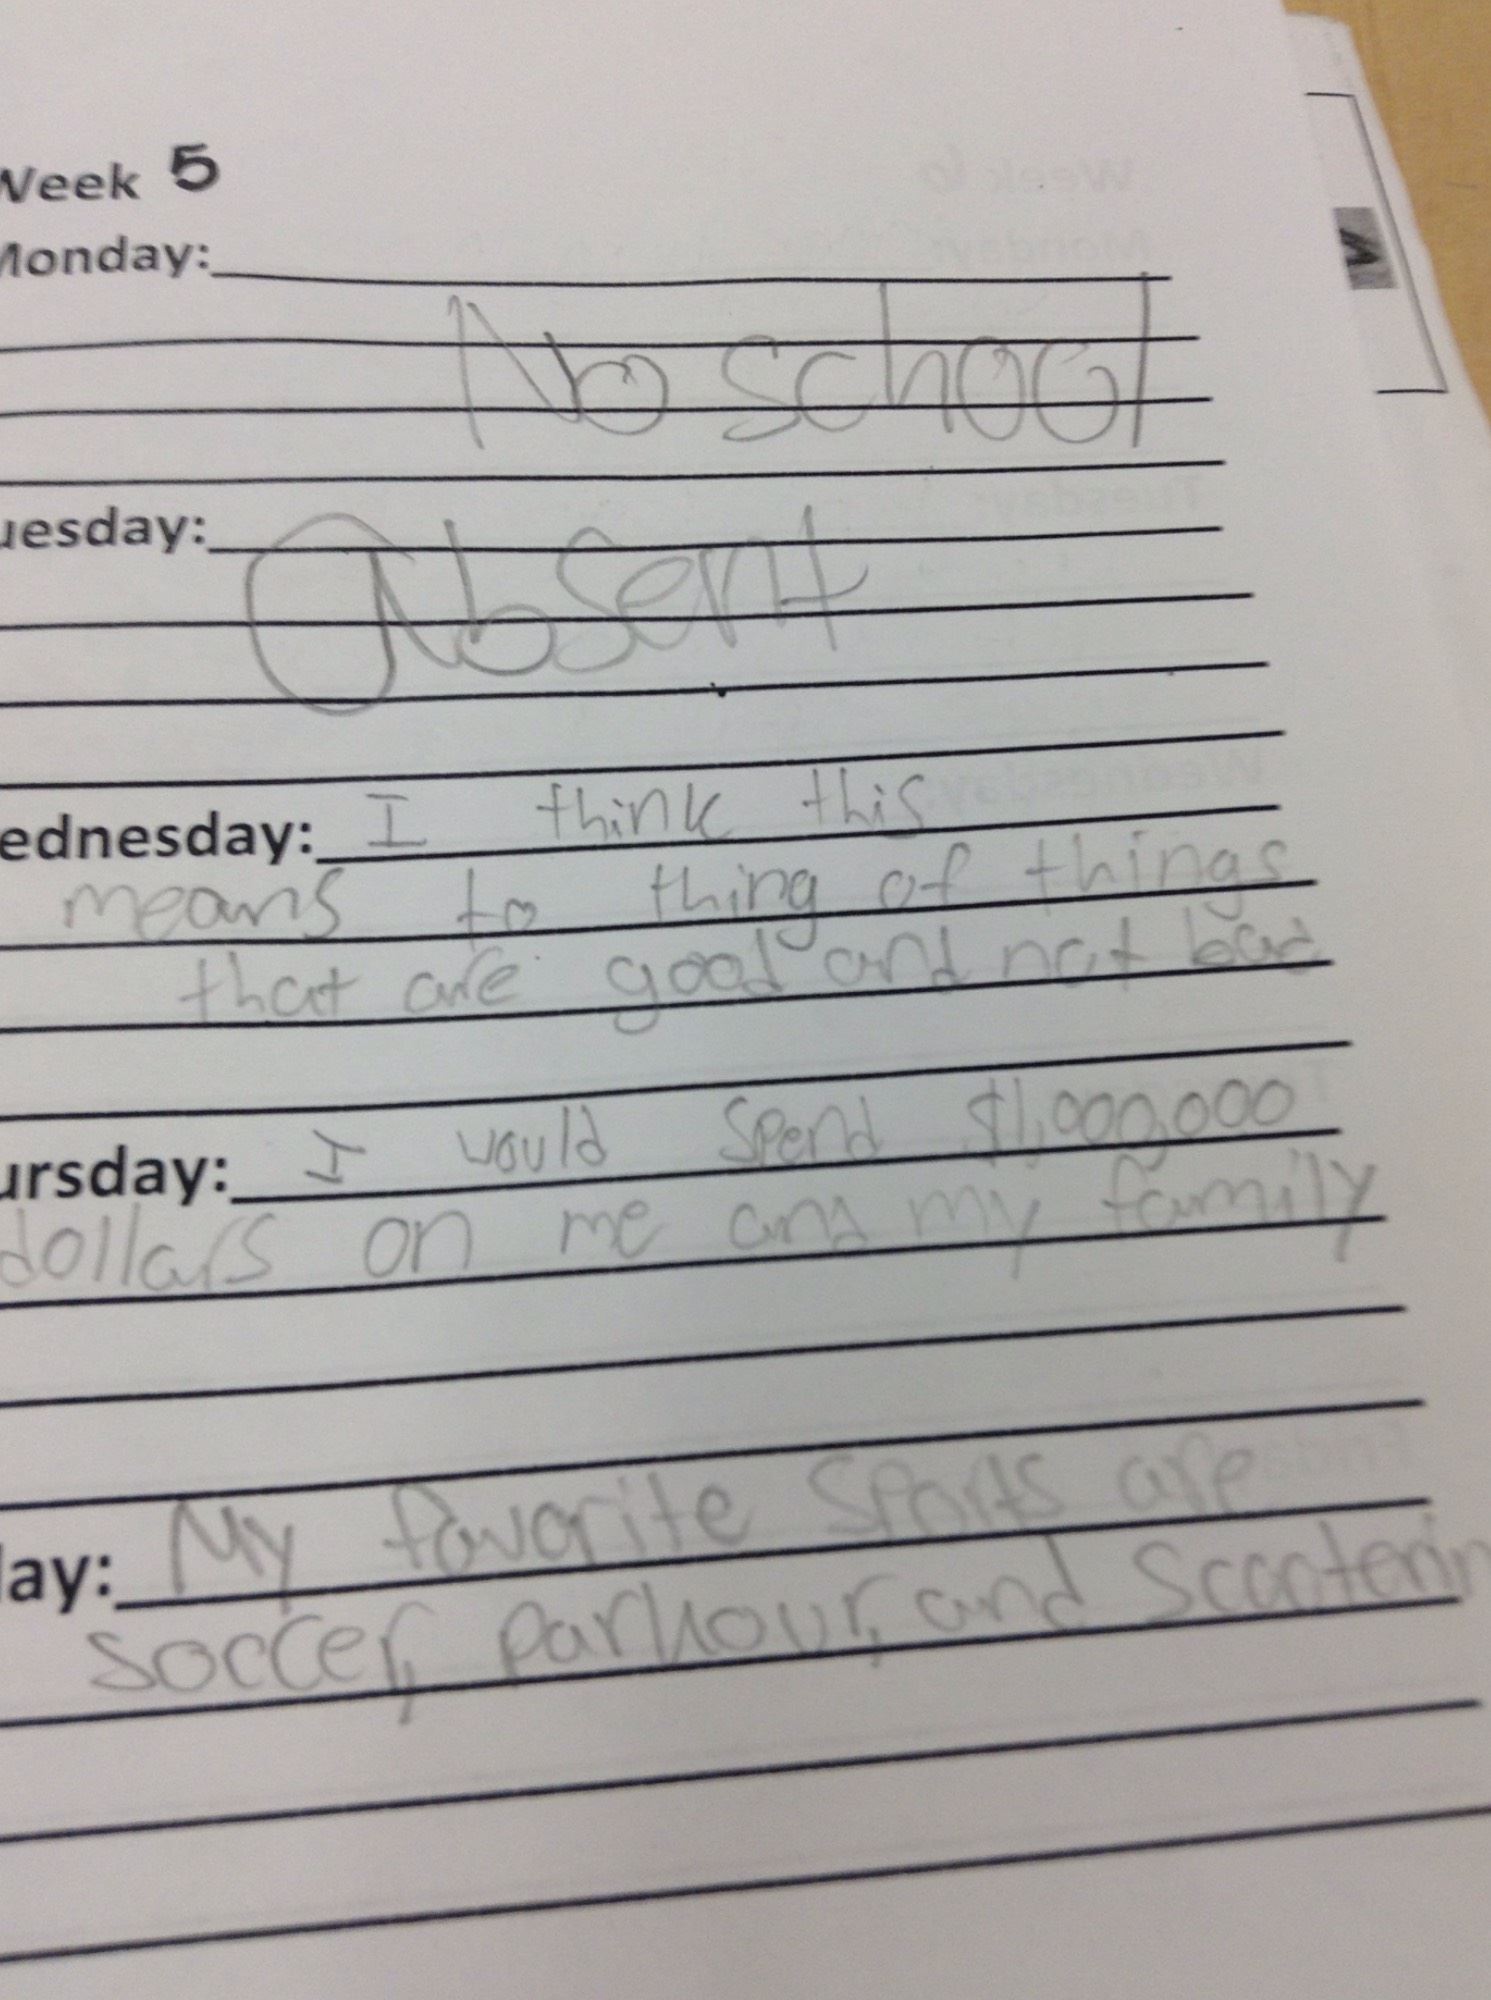 Week 5
Monday:
No school
uesday:
absent
ednesday: I think this
means to thing of things
that are good and not bad
ursday: I would spend $1,000,000
dollars on me and my family
day: My favorite sports are
soccer, parkour, and scooterin